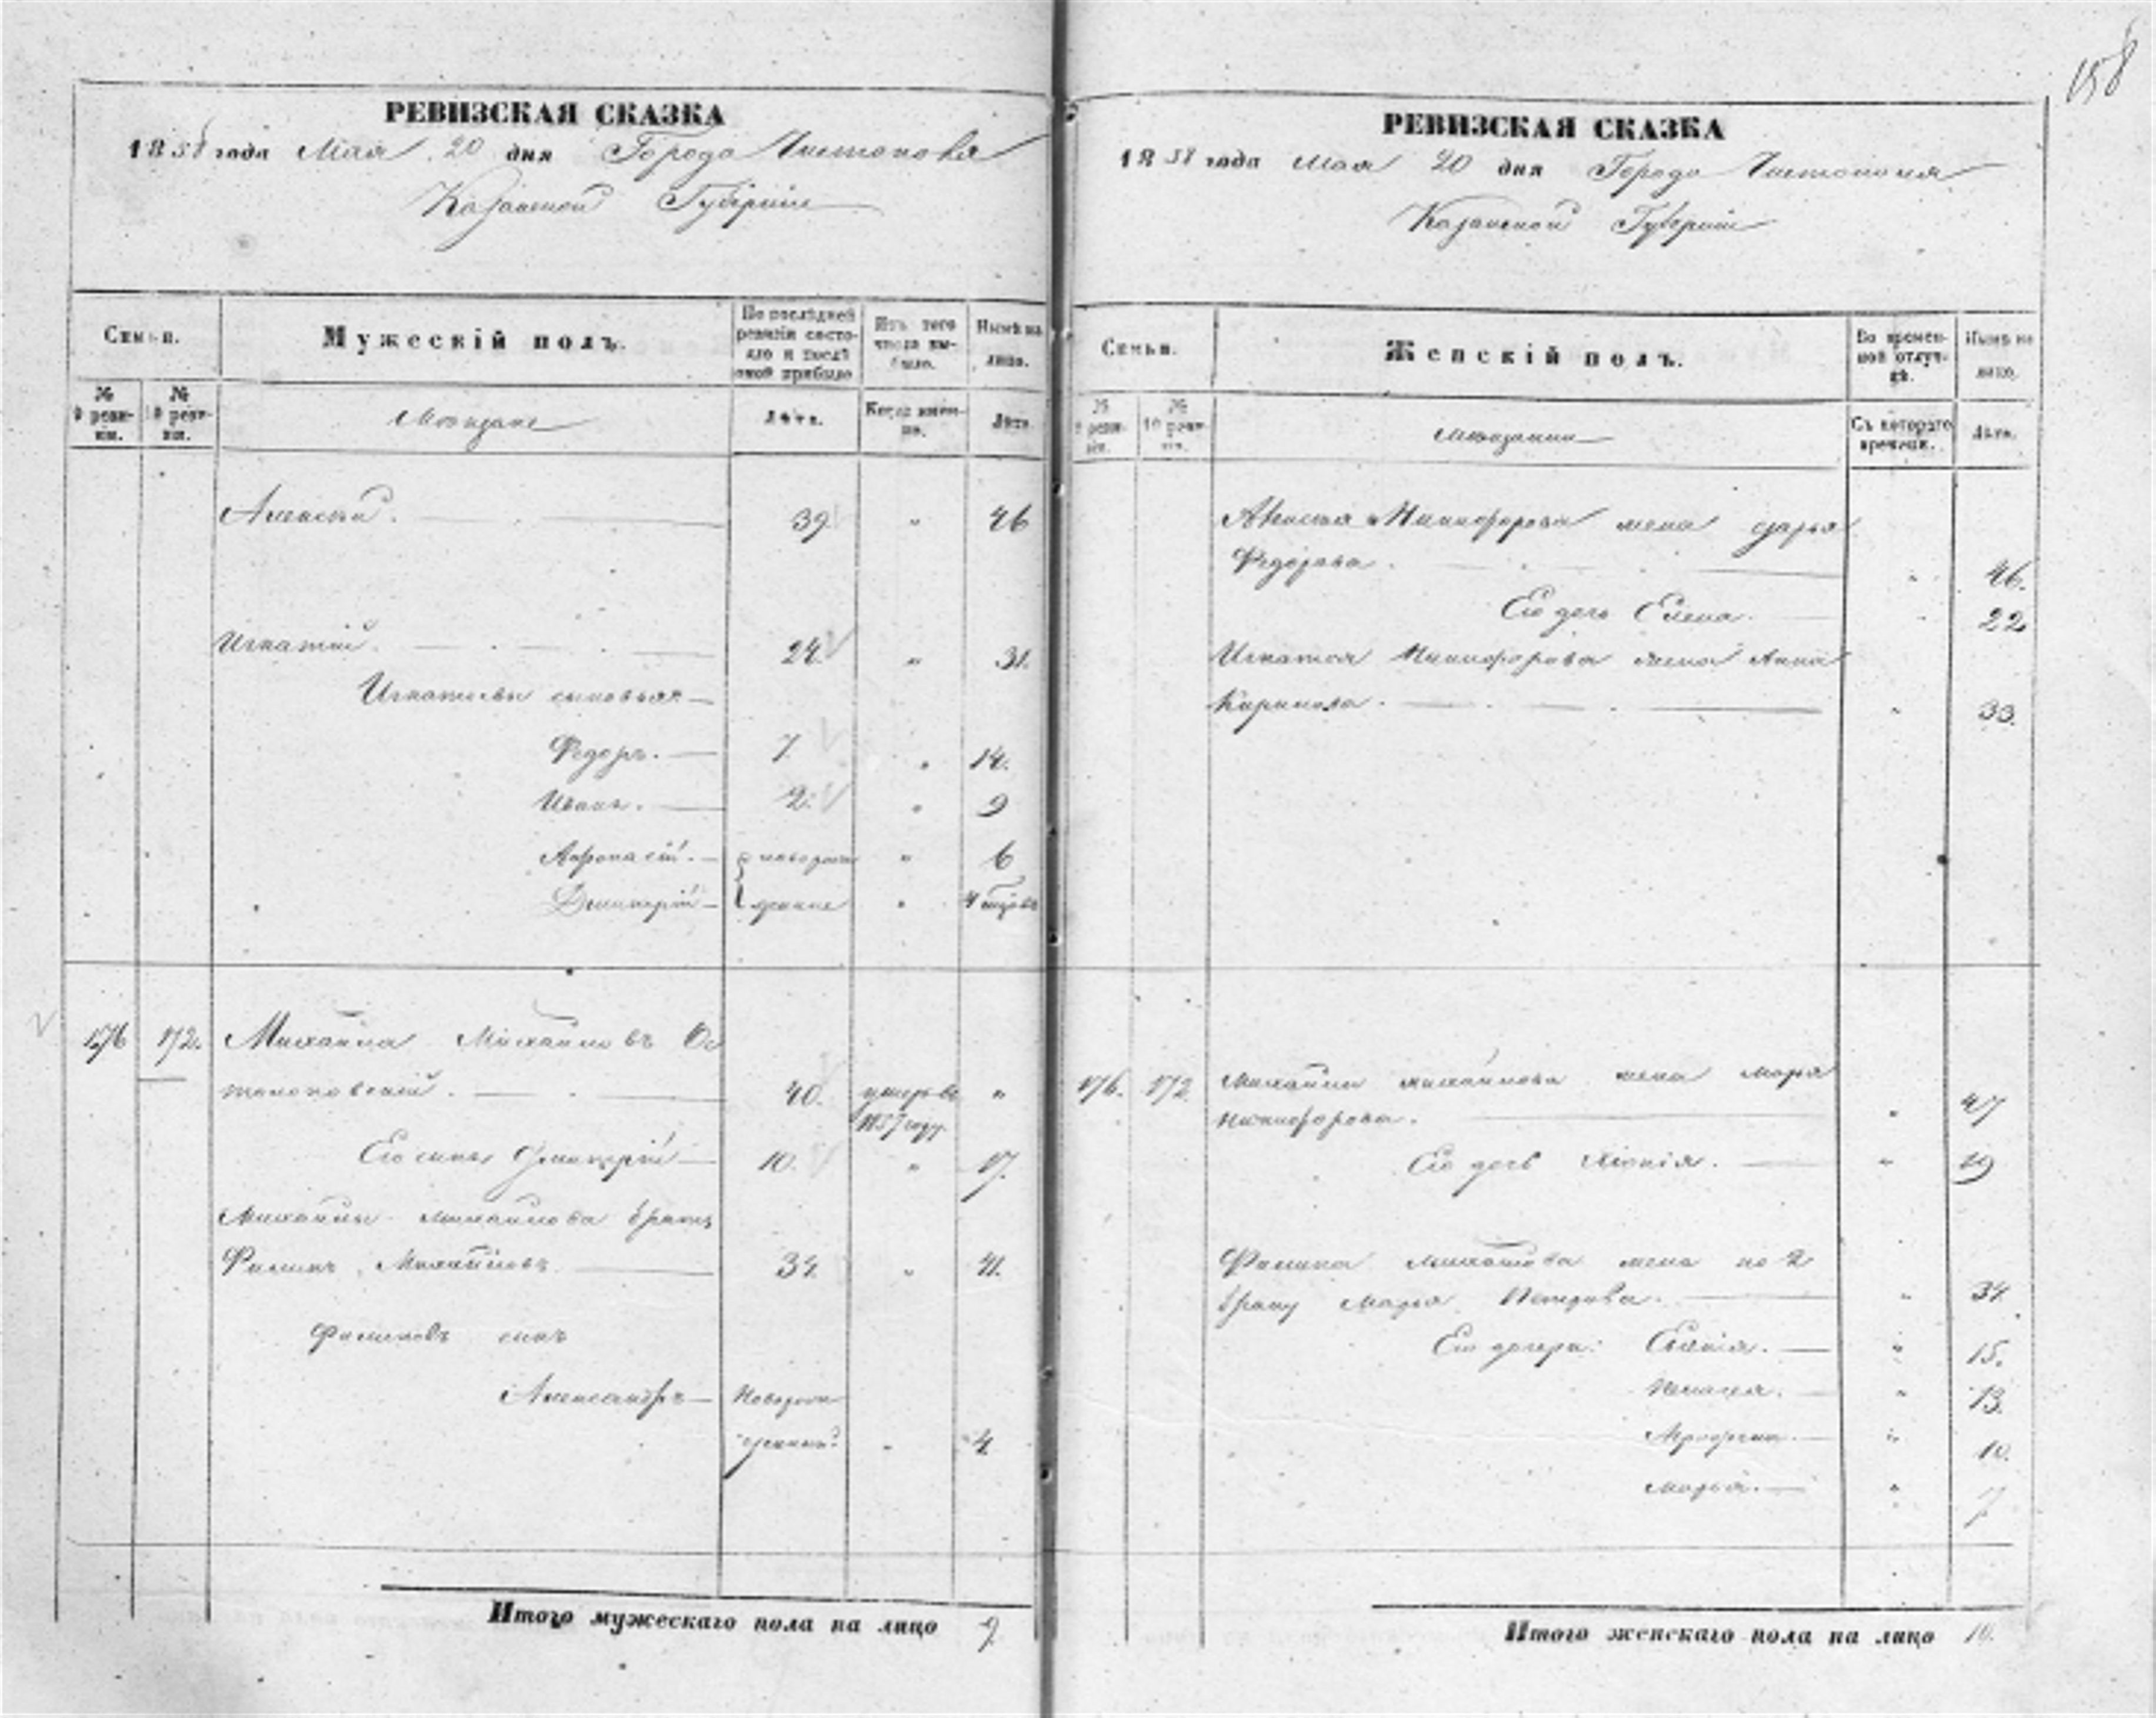 158
РЕВИЗСКАЯ СКАЗКА
1858 года Мая 20 дня Города Чистополя
Казанской Губернии
Семьи.
Мужескій полъ.
По послѣдней ревизіи состояло и послѣ оной прибыло
Изъ того числа выбыло.
Нынѣ на лицо.
№ 9 ревизіи.
№ 10 ревизіи.
Мѣщане
Лѣта.
Когда именно.
Лѣта.
Алексѣй. 39 " 46
Игнатій. 24. " 31.
Игнатьевы сыновья
Федоръ. 7. " 14.
Иванъ. 2. " 9
Афонасій. новорож " 6
Дмитрій денные " 4
176 172. Михайла Михайловъ
40. умеръ въ "
1857 году.
Его сынъ Дмитрій 10. " 17.
Михайлы Михайлова братъ
Филипъ Михайловъ 34. " 41.
Филиповъ сынъ
Александръ Новорож
денный " 4.
Итого мужескаго пола на лицо 9.
РЕВИЗСКАЯ СКАЗКА
1858 года Мая 20 дня Города Чистополя
Казанской Губернии
Семьи.
Женскій полъ.
Во временной отлучкѣ.
Нынѣ на лицо.
№ 9 ревизіи.
№ 10 ревизіи.
Съ котораго времени.
Лѣта.
Алексѣя Никифорова жена Дарья
Федорова. " 46.
Его дочь Елена. " 22
Игнатья Никифорова жена Анна
" 33.
176. 172 Михайлы Михайлова жена Марья
Никифорова. " 47
Его дочь Хіонія. " 19
Филипа Михайлова жена по 2
браку Марья Петрова. " 34.
Его дочери: " 15.
" 13.
" 10.
Марья. " 7
Итого женскаго пола на лицо 10.